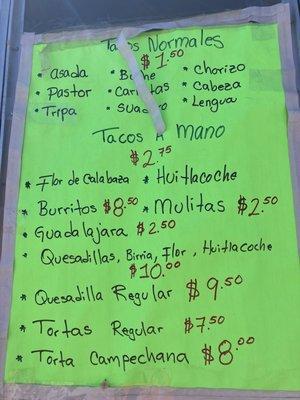 Tacos Normales
$1.50
• Asada • Buche • Chorizo
• Pastor • Carnitas • Cabeza
• Tripa • Suadero • Lengua
Tacos A Mano
$2.75
* Flor de Calabaza * Huitlacoche
• Burritos $8.50 * Mulitas $2.50
• Guadalajara $2.50
• Quesadillas, Birria, Flor, Huitlacoche
$10.00
* Quesadilla Regular $9.50
* Tortas Regular $7.50
* Torta Campechana $8.00